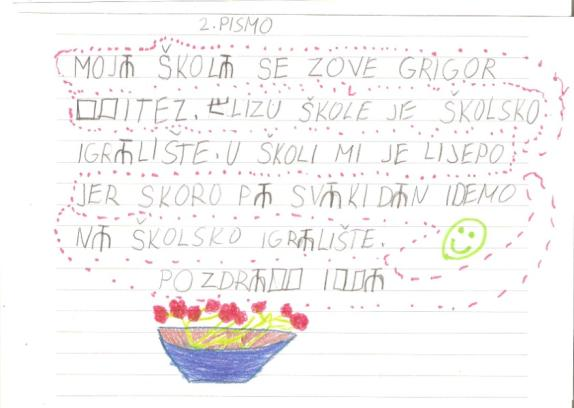 2. PISMO
MOJⰀ ŠKOLⰀ SE ZOVE GRIGOR
ⰂITEZ. ⰁLIZU ŠKOLE JE ŠKOLSKO
IGRⰀLIŠTE. U ŠKOLI MI JE LIJEPO
JER SKORO PⰀ SVⰀKI DⰀN IDEMO
NⰀ ŠKOLSKO IGRⰀLIŠTE.
POZDRⰀⰂ IⰂⰀ